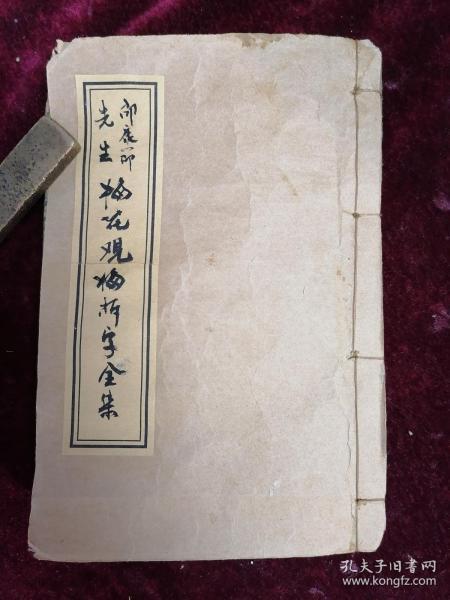 邵康节
先生梅花观梅拆字全集
孔夫子旧书网
www.kongfz.com